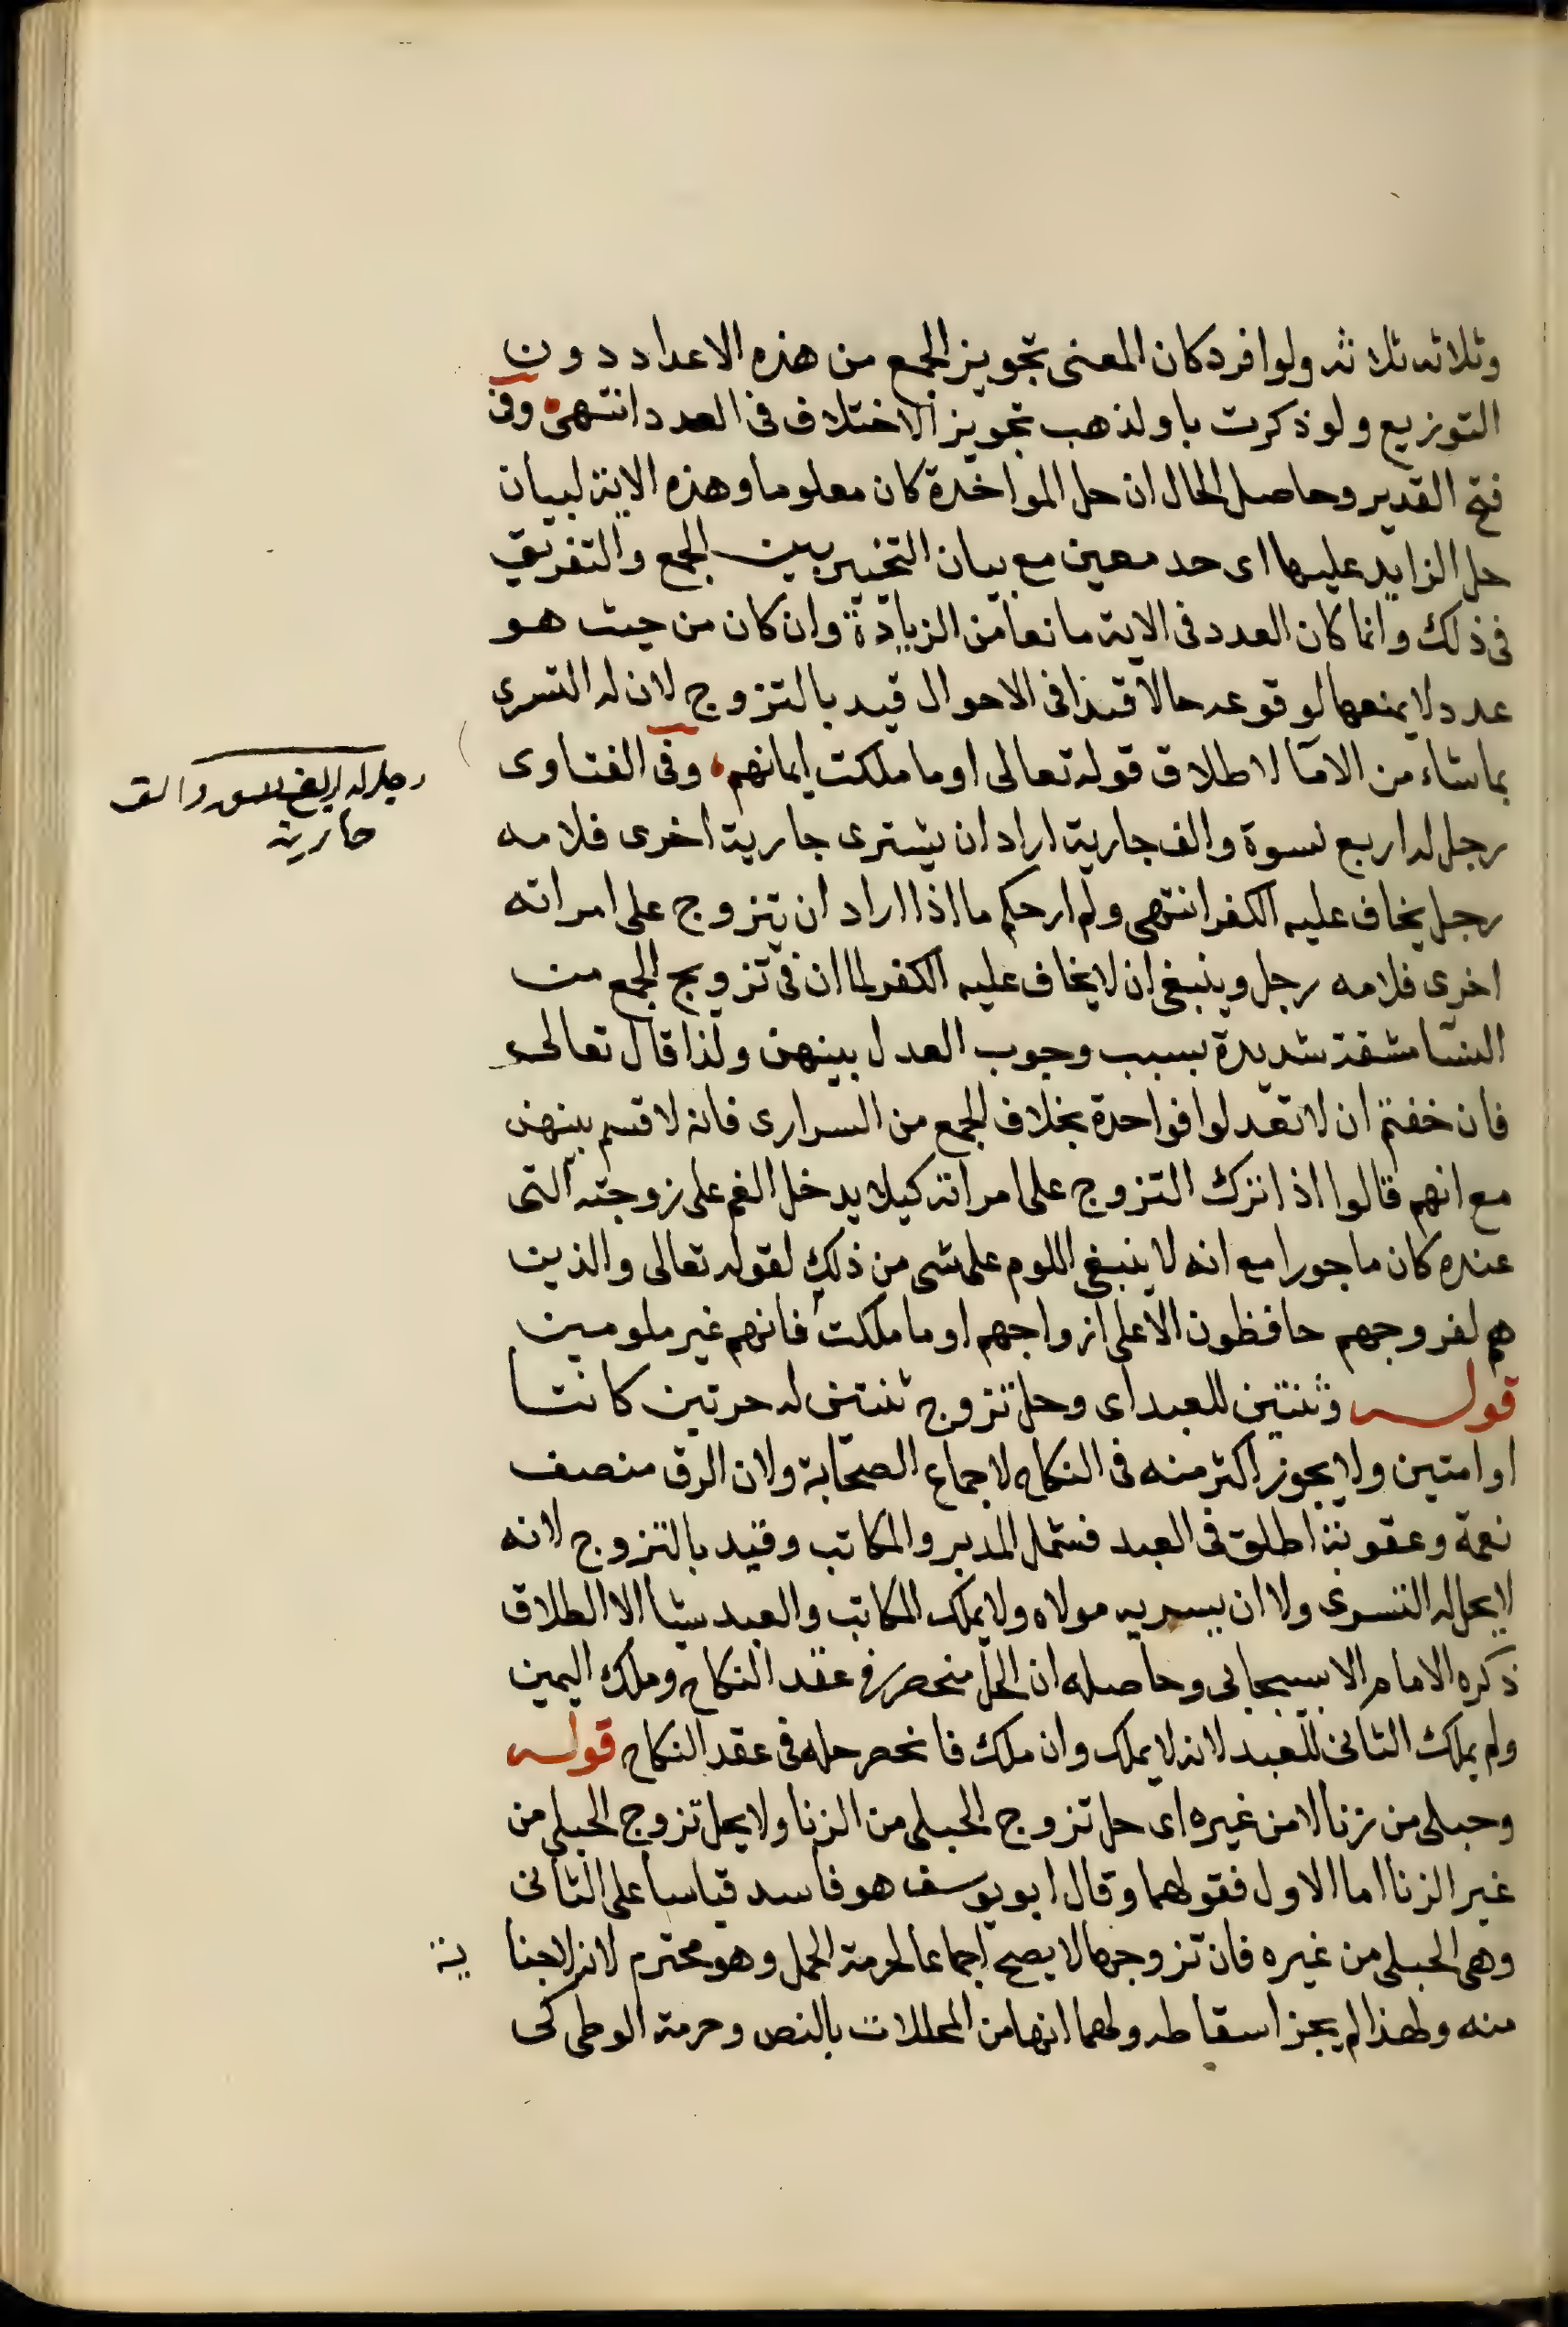 وثلاثه ثلاثه ولو افرد كان المعنى تجويز الجمع من هذه الاعداد دون
التوزيع ولو ذكرت باو لذهب تجويز الاختلاف فى العدد انتهى وفى
فتح القدير وحاصل الحال ان حل الواحدة كان معلوما وهذه الاية لبيان
حل الزايد عليها اى حد معين مع بيان التخيير بين الجمع والتفريق
فى ذلك وانما كان العدد فى الاية مانعا من الزيادة وان كان من حيث هو
عدد لا يمنعها لوقوعه حالا قيدا فى الاحوال قيد بالتزوج لان له التسرى
بما شاء من الامآ لاطلاق قوله تعالى او ما ملكت ايمانهم وفى الفتاوى
رجل له اربع نسوة والف جارية اراد ان يشترى جارية اخرى فلامه
رجل يخاف عليه الكفر انتهى ولم ار حكم ما اذا اراد ان يتزوج على امراته
اخرى فلامه رجل وينبغى ان لا يخاف عليه الكفر لما ان فى تزويج الجمع من
النسآ مشقة شديدة بسبب وجوب العدل بينهن ولذا قال تعالى
فان خفتم ان لا تعدلوا فواحدة بخلاف الجمع من السرارى فانه لا قسم بينهن
مع انهم قالوا اذا ترك التزوج على امراته كيلا يدخل الغم على زوجته التى
عنده كان ماجورا مع انه لا ينبغى اللوم على شى من ذلك لقوله تعالى والذين
هم لفروجهم حافظون الا على ازواجهم او ما ملكت فانهم غير ملومين
قوله وثنتين للعبد اى وحل تزوج ثنتين له حرتين كانتا
او امتين ولا يجوز اكثر منه فى النكاح لاجماع الصحابة ولان الرق منصف
نعمة وعقوبة اطلق فى العبد فشمل المدبر والمكاتب وقيد بالتزوج لانه
لا يحل له التسرى ولا ان يسريه مولاه ولا يملك المكاتب والعبد شيا الا الطلاق
ذكره الامام الاسبيجابى وحاصله ان الحل منحصر فى عقد النكاح وملك اليمين
ولم يملك الثانى للعبد لانه لا يملك وان ملك فانحصر حله فى عقد النكاح قوله
وحبلى من زنا لا من غيره اى حل تزوج الحبلى من الزنا ولا يحل تزوج الحبلى من
غير الزنا اما الاول فقولهما وقال ابو يوسف هو فاسد قياسا على الثانى
وهى الحبلى من غيره فان تزوجها لا يصح اجماعا لحرمة الحمل وهو محترم لانه لا جناية
منه ولهذا لم يجز اسقاطه ولهما انها من المحللات بالنص وحرمة الوطى كى
رجل له اربع نسوة والف
جارية